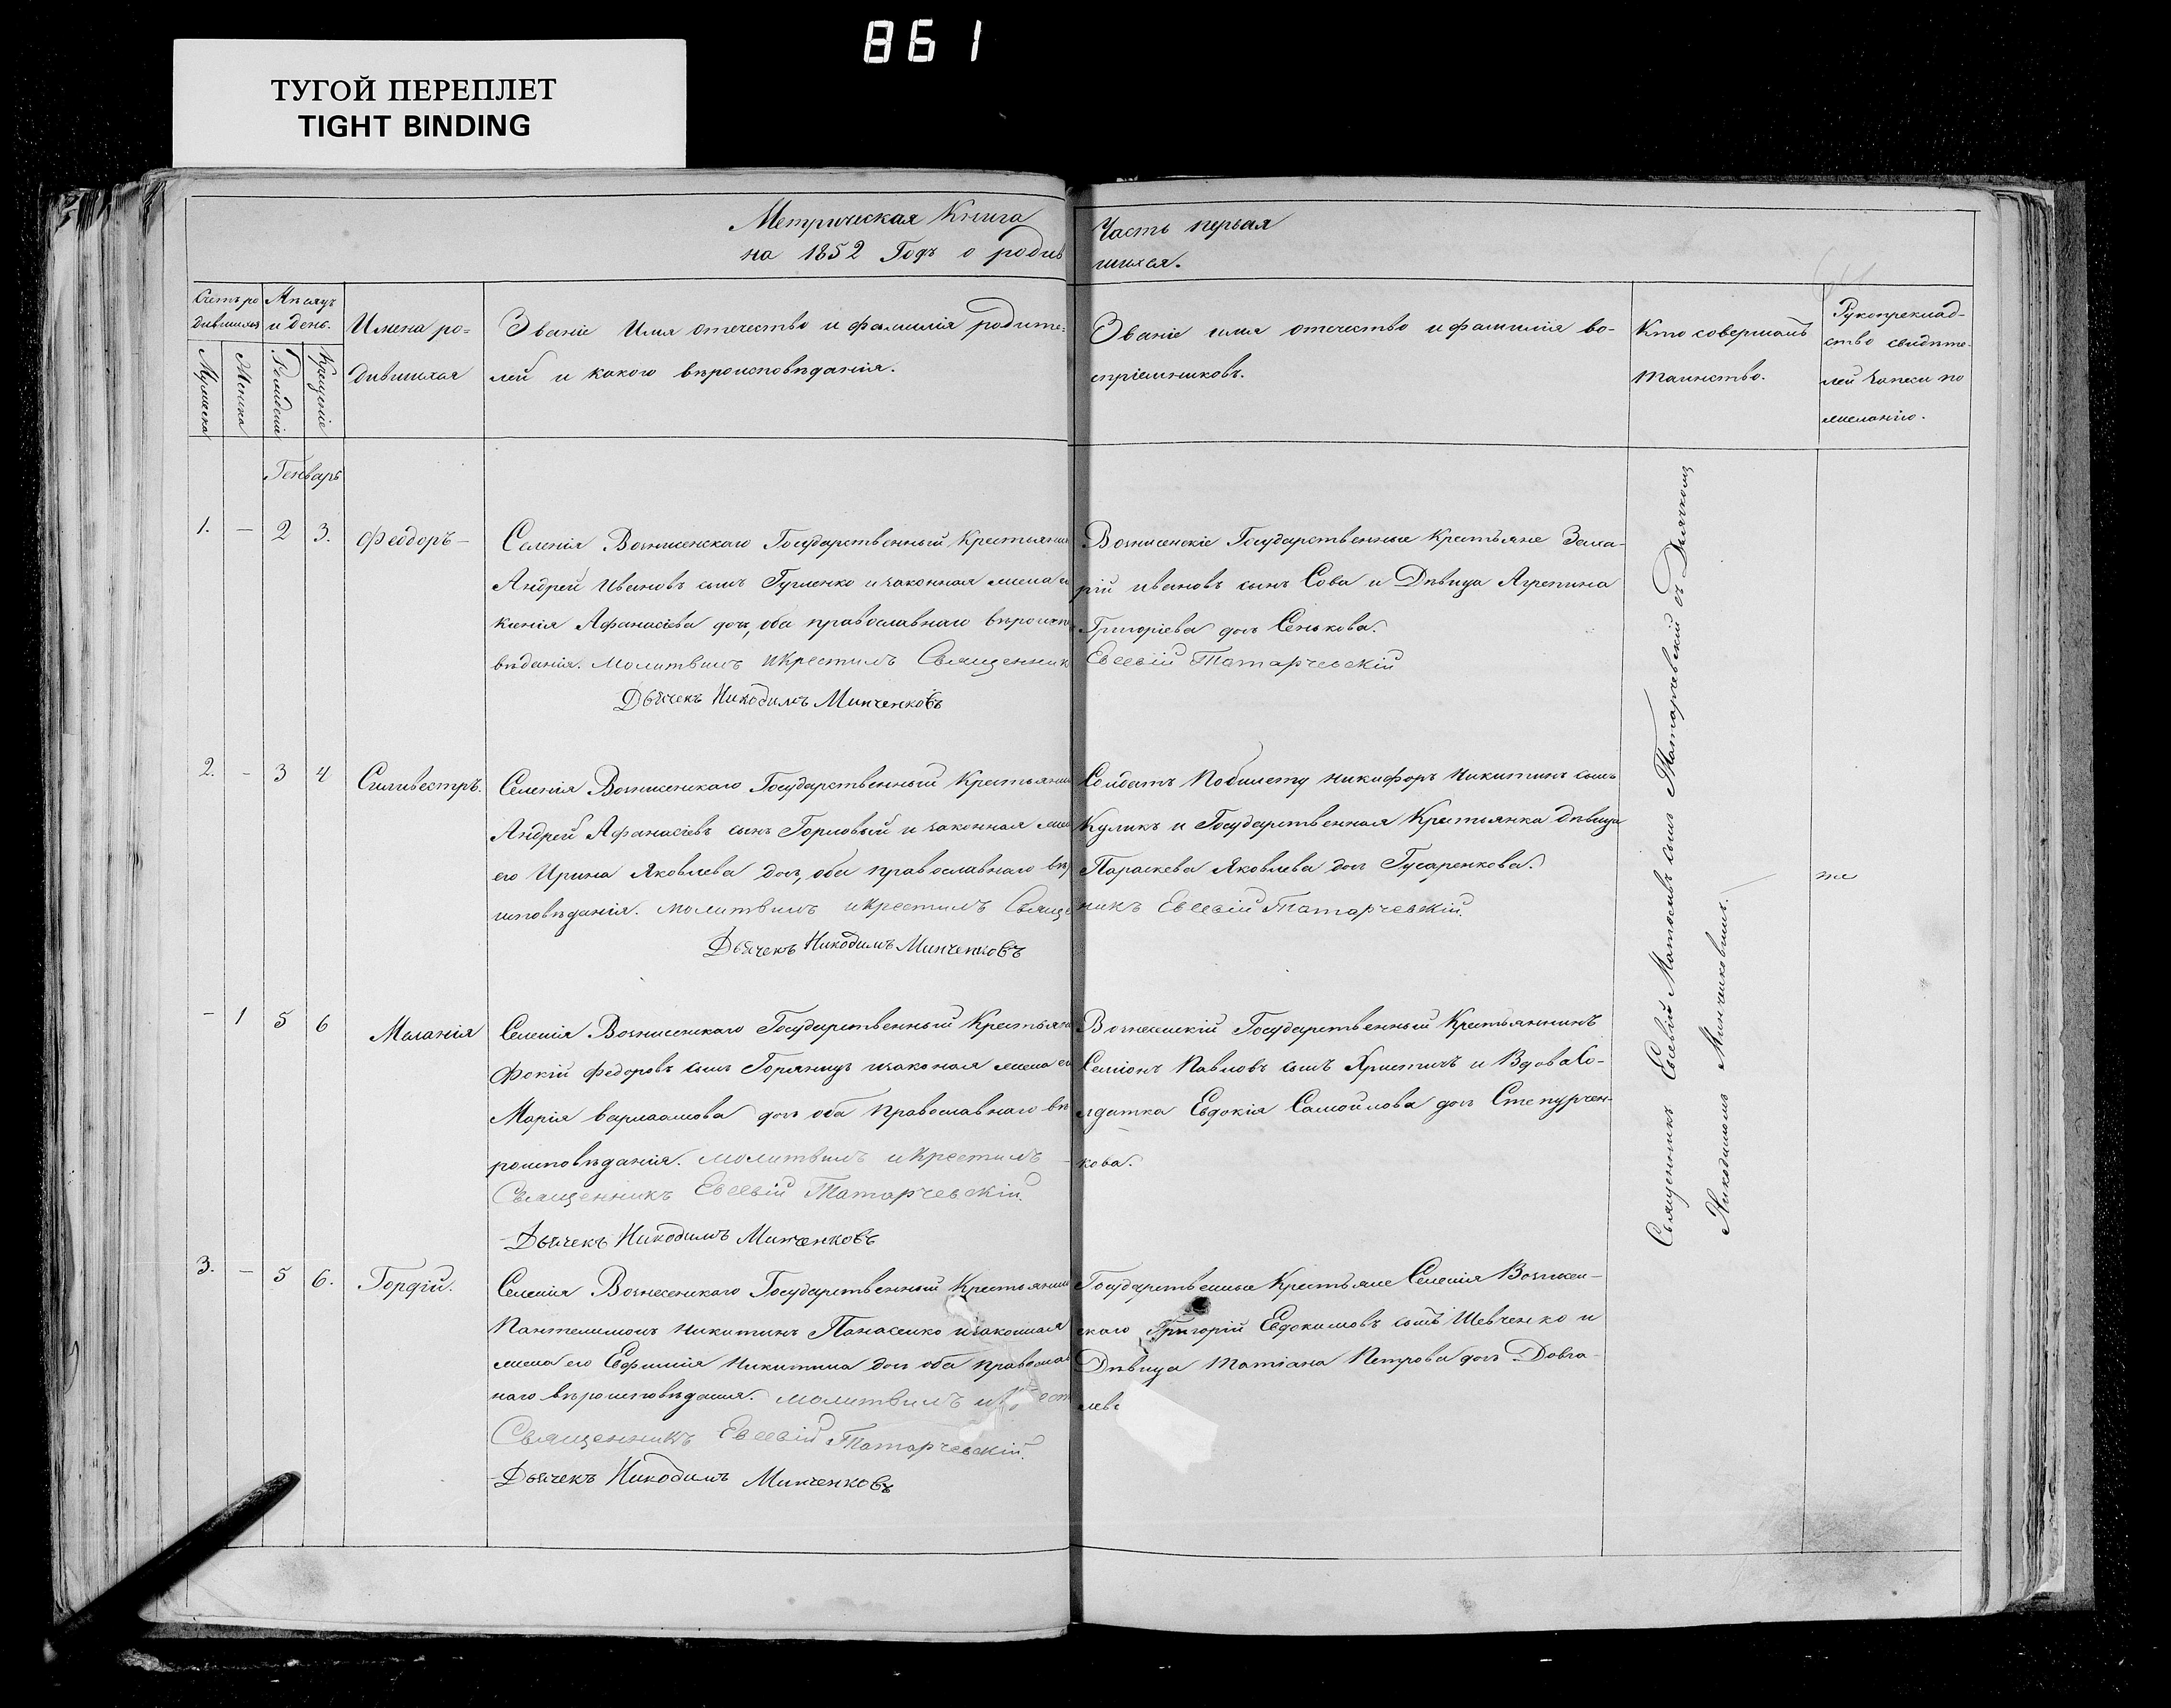 861
ТУГОЙ ПЕРЕПЛЕТ
TIGHT BINDING
Метрическая Книга
на 1852 Годъ о родив
Часть первая
шихся.
Счетъ ро
дившихся
Мѣсяцъ
и день.
Мужеска
Женска
Рожденіе
Крещеніе
Имена ро=
дившихся
Званіе Имя отечество и фамилія родите=
лей и какого вѣроисповѣданія.
Званіе имя отечество и фамилія во-
спріемниковъ.
Кто совершалъ
таинство.
Рукоприклад-
ство свидѣте-
лей записи по
желанію.
Генварь
1. — 2 3. Феодоръ —
Селенія Вознисенскаго Государственный Крестиянин
Андрей Ивановъ сынъ Гугленко и законная жена е
ксенія Афанасіева дочь, оба православнаго вѣроиспо
вѣданія. Молитвилъ и Крестилъ Священник
Дьячекъ Никодимъ Минченковъ
Вознисенскіе Государственные Крестьяне Заха-
рій ивановъ сынъ Сова и Дѣвица Агрепина
Григоріева дочь Сенькова.
Евсевій Татарчевскій
2. - 3 4 Силивестръ.
Селенія Вознисенскаго Государственный Крестьянин
Андрей Афанасіевъ сынъ Горловый и законная жен
его Ирина Яковлева дочь, оба православнаго вѣр
исповѣданія. молитвилъ и Крестилъ Свяще
Дьячекъ Никодимъ Минченковъ
Солдатъ По билету Никифоръ Никитинъ сынъ
Куликъ и Государственная Крестьянка дѣвица
Параскева Яковлева дочь Гусаренкова.
никъ Евсевій Татарчевскій.
же
- 1 5 6 Маланія
Селенія Вознисенскаго Государственный Крестьяни
Фокій Федоровъ сынъ Горяницъ и законая жена ег
Марія варлаамова дочь оба Православнаго вѣ
роисповѣданія. молитвилъ и Крестилъ
Священникъ Евсевій Татарчевскій.
Дьячекъ Никодимъ Минченковъ
Вознесенскій Государственный Крестьянинъ
Семіонъ Павловъ сынъ Христичъ и Вдова Со-
лдатка Евдокія Самойлова дочь Степурчен-
кова.
3. — 5 6. Гордій.
Селенія Вознесенскаго Государственный Крестьянин
Пантелимонъ Никитинъ Панасенко и законная
жена его Евфимія Никитина дочь оба православ
наго вѣроисповѣданія. молитвилъ и
Священникъ Евсевій Татарчевскій.
Дьячекъ Никодимъ Минченковъ
Государственные Крестьяне Селенія Вознисен-
скаго Григорій Евдокимовъ сынъ Шевченко и
Дѣвица Татіана Петрова дочь Довга-
лев
Священникъ Евсевій Матвѣевъ сынъ Татарчевскій съ Дьячкомъ
Никодимомъ Минчиковымъ.